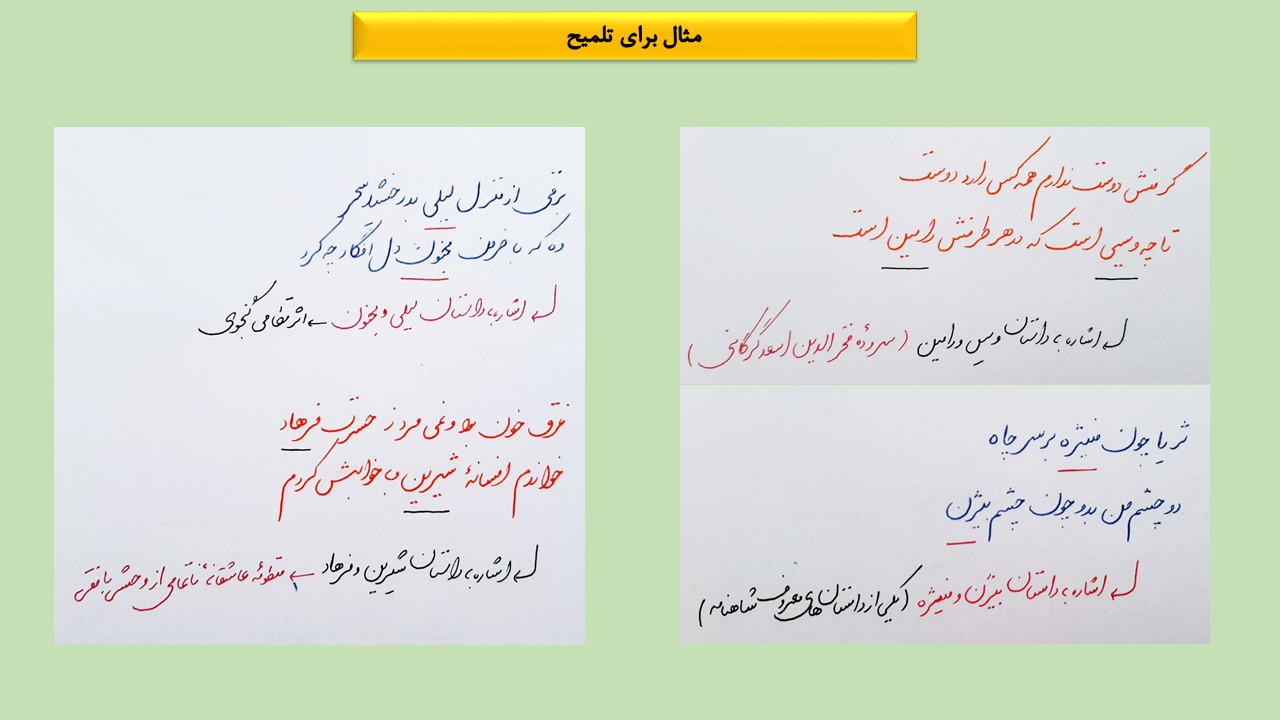 مثال برای تلمیح
گر منش دوست ندارم همه کس دارد دوست
تا چه ویسی است که در هر طرفش رامین است
اشاره به داستان ویس و رامین (سرودهٔ فخرالدین اسعد گرگانی)
ثریا چون منیژه بر سر چاه
دو چشم من بدو چون چشم بیژن
اشاره به داستان بیژن و منیژه (یکی از داستان‌های معروف شاهنامه)
برقی از منزل لیلی بدرخشید سحر
وه که با خرمن مجنون دل افگار چه کرد
اشاره به داستان لیلی و مجنون ← اثر نظامی گنجوی
غرق خون بود و نمی‌مرد ز حسرت فرهاد
خواندم افسانهٔ شیرین و به خوابش کردم
اشاره به داستان شیرین و فرهاد ← منظومهٔ عاشقانهٔ ناتمامی از وحشی بافقی